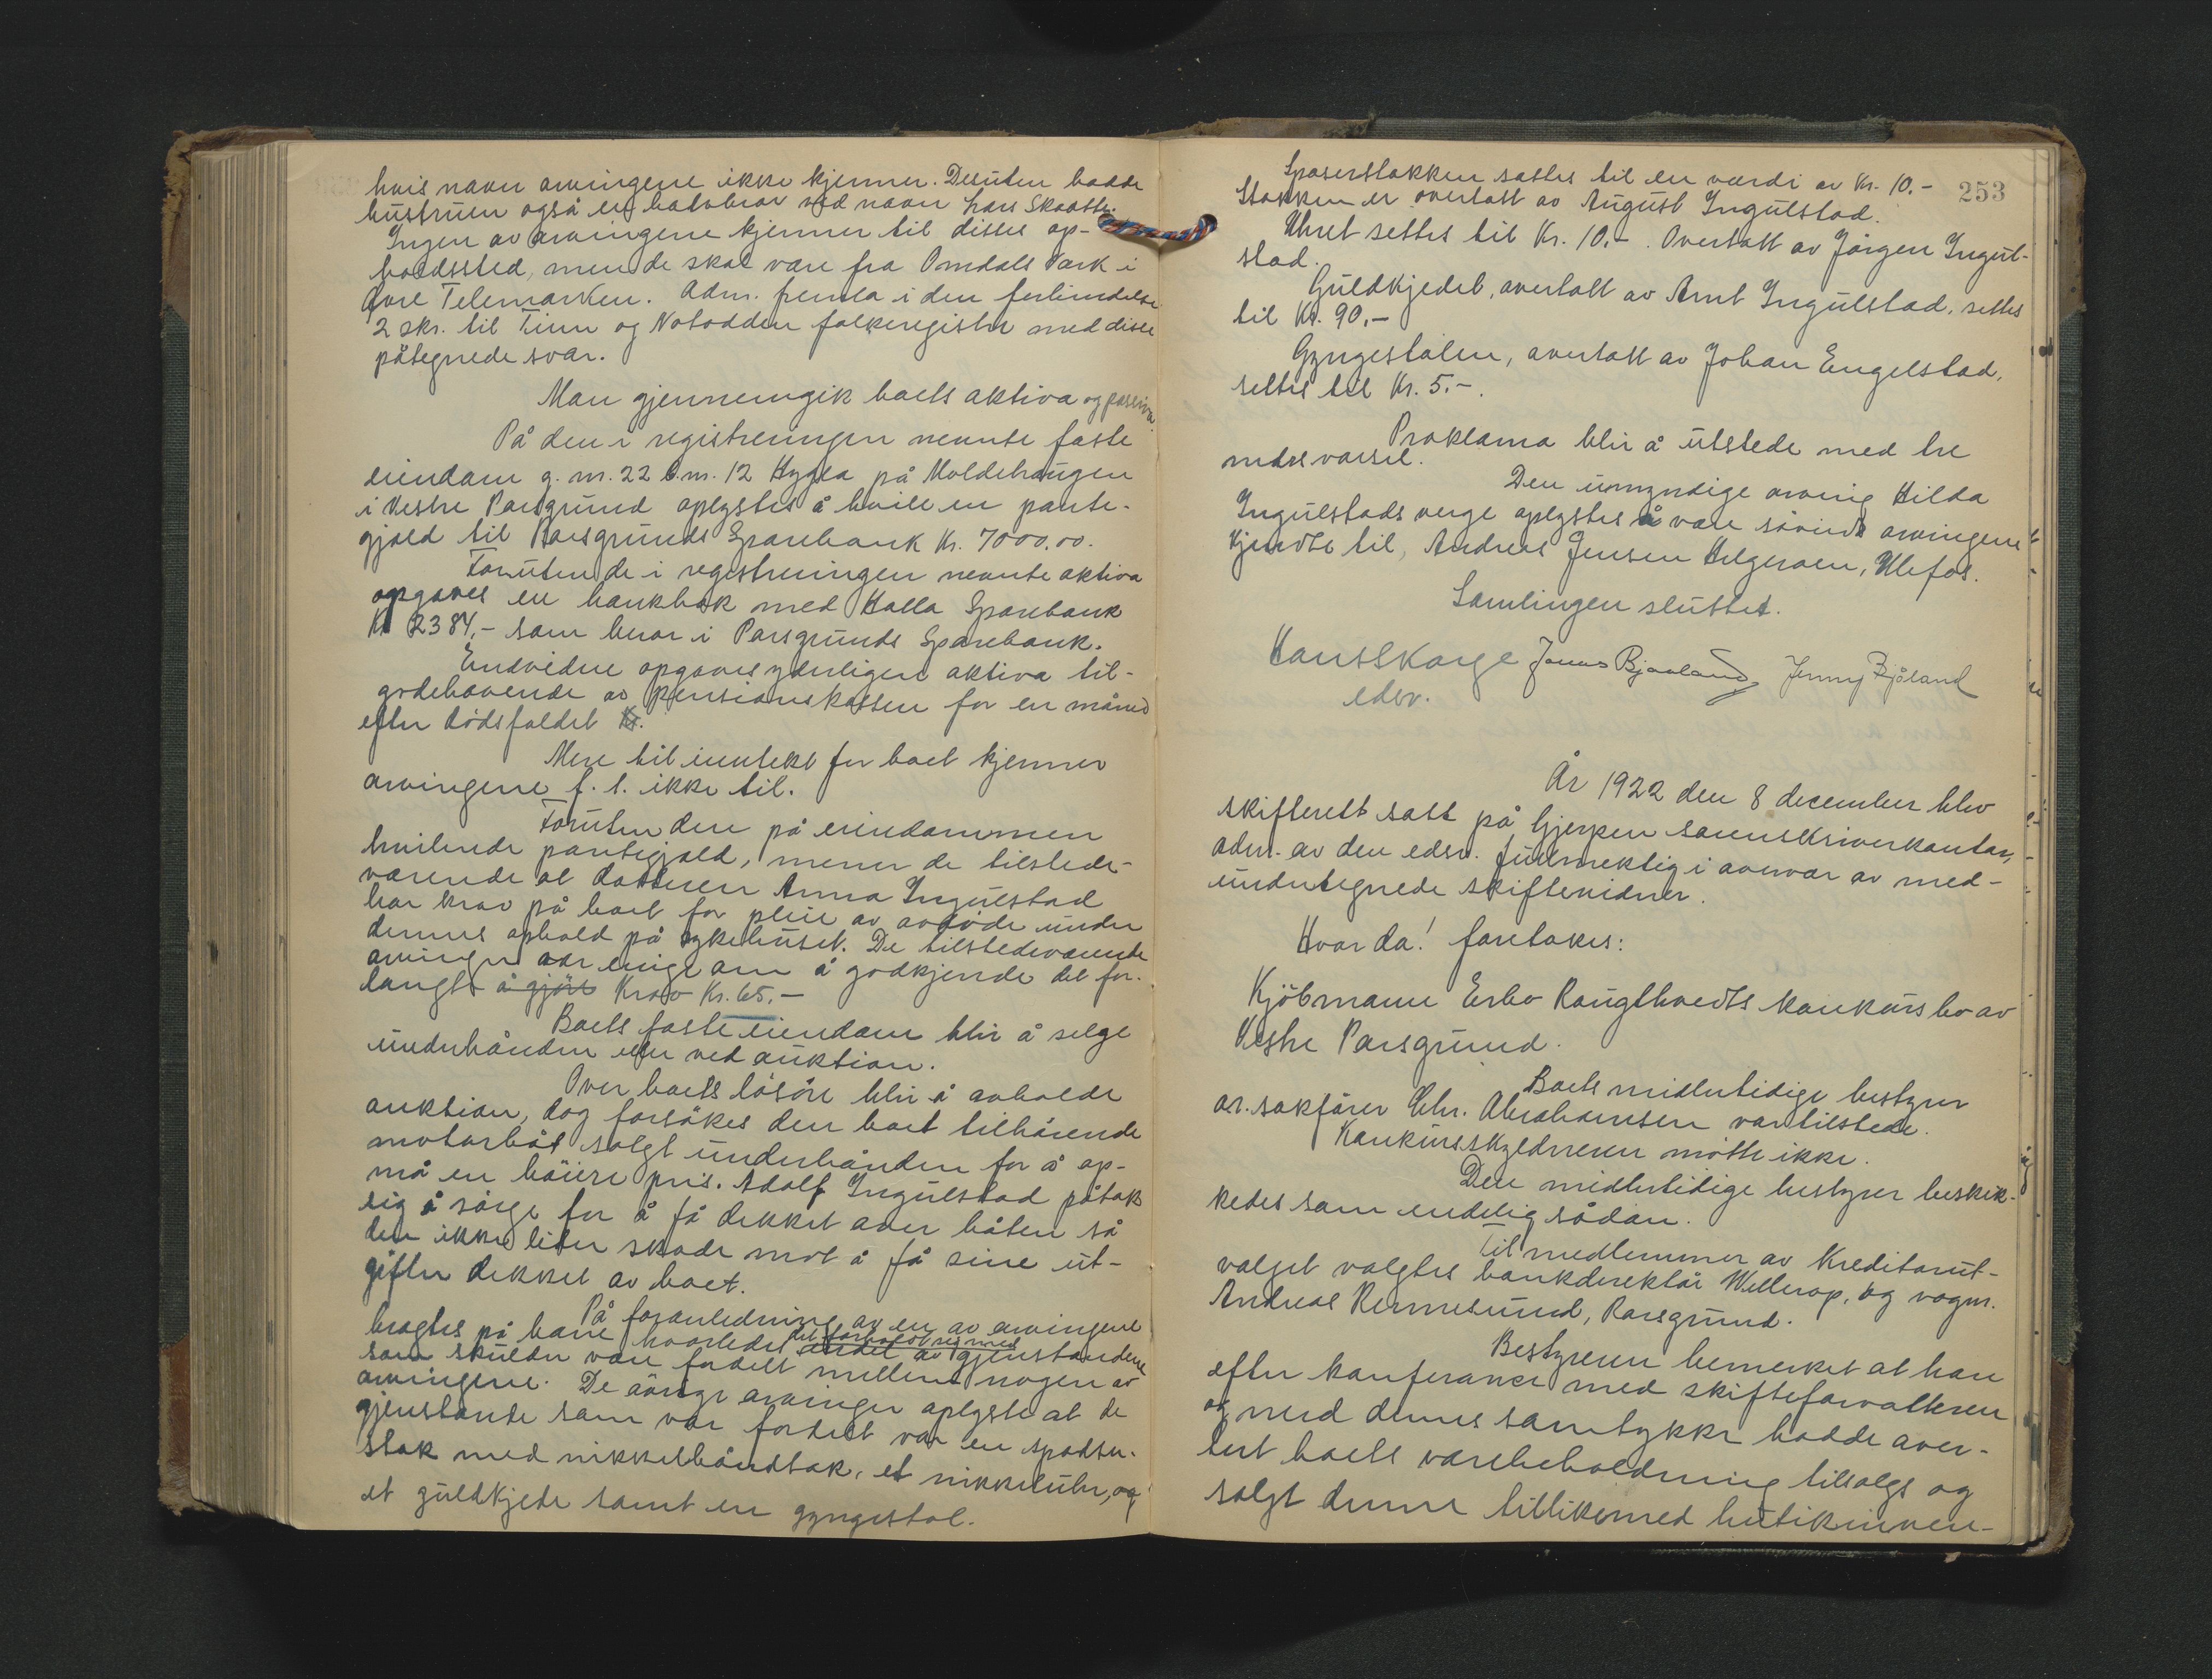 hvis navn arvingene ikke kjenner. Desuten hadde
hustruen også en halvbror ved navn Lars Skaatte.
Ingen av arvingene kjenner til disses op-
holdssted, men de skal være fra Omdals Værk i
Øvre Telemarken. Adm. fremla i den forbindelse
2 skr. til Tinn og Notodden folkeregister med disse
påtegnede svar.
Man gjennemgik boets aktiva og passiva.
På den i registreringen nevnte faste
eiendom g. nr. 22 b. nr. 12 Hygga på Moldehaugen
i Vestre Porsgrund oplystes å hvile en pante-
gjæld til Porsgrunds Sparebank Kr. 7000.00.
Foruten de i registreringen nevnte aktiva
opgaves en bankbok med Holla Sparebank
Kr 2384,- som beror i Porsgrunds Sparebank.
Endvidere opgaves yderligere aktiva til-
godehavende av pensionskassen for en måned
efter dødsfaldet Kr.
Mere til inntekt for boet kjenner
arvingene f. t. ikke til.
Foruten den på eiendommen
hvilende pantegjæld, mener de tilstede-
værende at datteren Anna Ingulstad
har krav på boet for pleie av avdøde under
dennes ophold på sykehuset. De tilstedeværende
arvinger var enige om å godkjende det for-
langte å gjøre Krav Kr. 65.-
Boets faste eiendom blir å selge
underhånden eller ved auktion.
Over boets løsøre blir å avholde
auktion, dog forsøkes den boet tilhørende
motorbåt solgt underhånden for å op-
nå en høiere pris. Adolf Ingulstad påtok
sig å sørge for å få dekket over båten så
den ikke lider skade mot å få sine ut-
gifter dekket av boet.
På foranledning av en av arvingene
bragtes på bane hvorledes det forholdt sig med
endel av gjenstandene
som skulde være fordelt mellem nogen av
arvingene. De øvrige arvinger oplyste at de
gjenstande som var fordelt var en spadser-
stok med nikkelhåndtak, et nikkeluhr, og
et guldkjede samt en gyngestol.
253
Spaserstokken sattes til en værdi av Kr. 10.-
Stokken er overtatt av August Ingulstad.
Uhret settes til Kr. 10.-. Overtatt av Jørgen Ingul-
stad.
Guldkjedet, overtatt av Arnt Ingulstad, settes
til Kr. 90.-
Gyngestolen, overtatt av Johan Engelstad,
settes til Kr. 5.-.
Proklama blir å utstede med tre
mdrs varsel.
Den umyndige arving Hilda
Ingulstads verge oplystes å være såvidt arvingene
kjendte til, Andreas Jensen Helgeroen, Ulefos.
Samlingen sluttet.
Hans Skarge Jonas Bjaaland Jenny Bjåland
edsv.
År 1922 den 8 december blev
skifterett satt på Gjerpen sorenskriverkontor,
adm. av den edsv. fullmektig i nærvær av med-
undertegnede skiftevidner.
Hvor da! foretokes:
Kjøbmann Erbo Raugthvedts konkursbo av
Vestre Porsgrund.
Boets midlertidige bestyrer
or. sakfører Chr. Abrahamsen var tilstede.
Konkursskyldneren møtte ikke.
Den midlertidige bestyrer beskik-
kedes som endelig sådan.
Til medlemmer av Kreditorut-
valget valgtes bankdirektør Wellerop, og vogm.
Andreas Rennesund, Porsgrund.
Bestyreren bemerket at han
efter konferance med skifteforvalteren
og med dennes samtykke hadde aver-
tert boets varebeholdning tilsalgs og
solgt denne tillikemed butikinven-